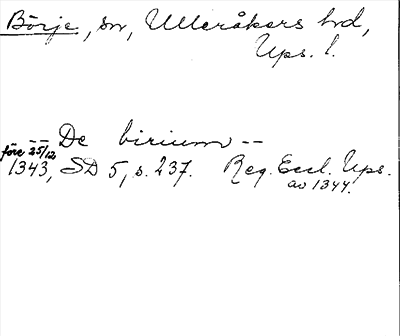 Börje, sn, Ulleråkers hrd,
Ups. l.
-- De birium --
före 25/12
1343, SD 5, s. 237. Reg. Eccl. Ups.
av 1344.